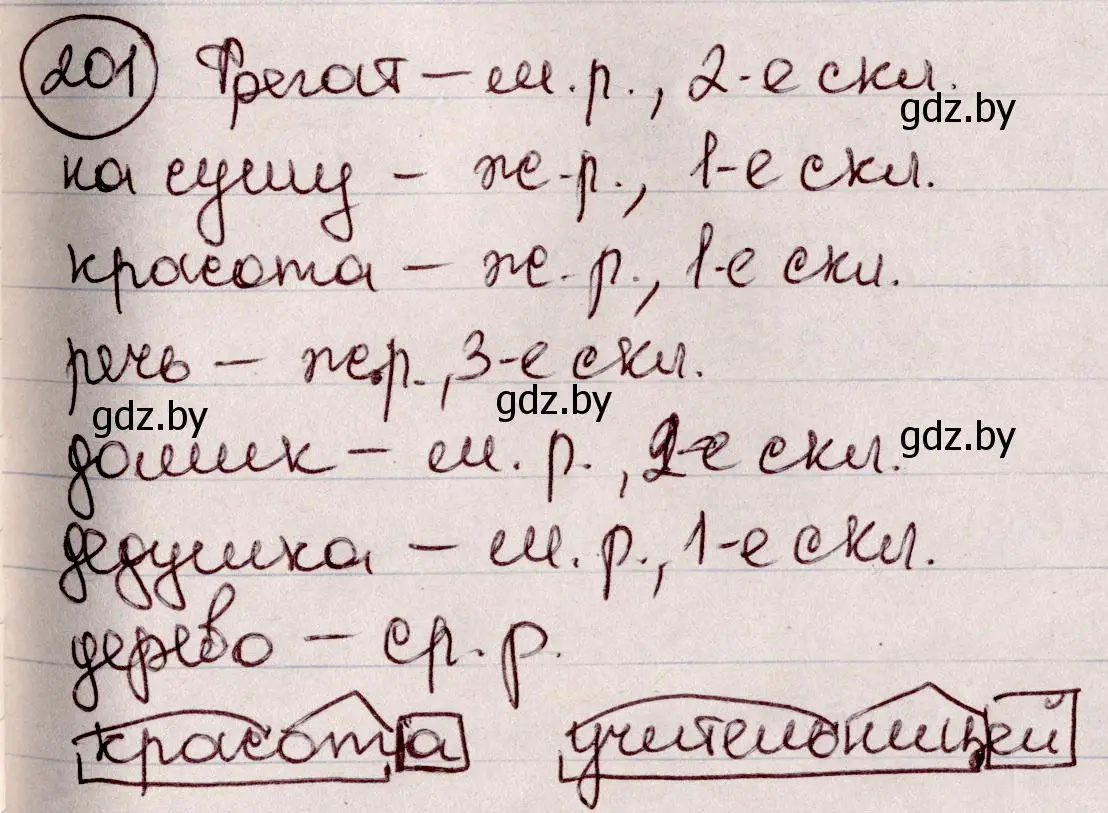 201 Фрегат – м.р., 2-е скл.
gdz.by
на сушу – ж.р., 1-е скл.
красота – ж.р., 1-е скл.
речь – ж.р., 3-е скл.
gdz.by gdz.by gdz.by
домик – м.р., 2-е скл.
дедушка – м.р., 1-е скл.
дерево – ср.р.
красота учительницей